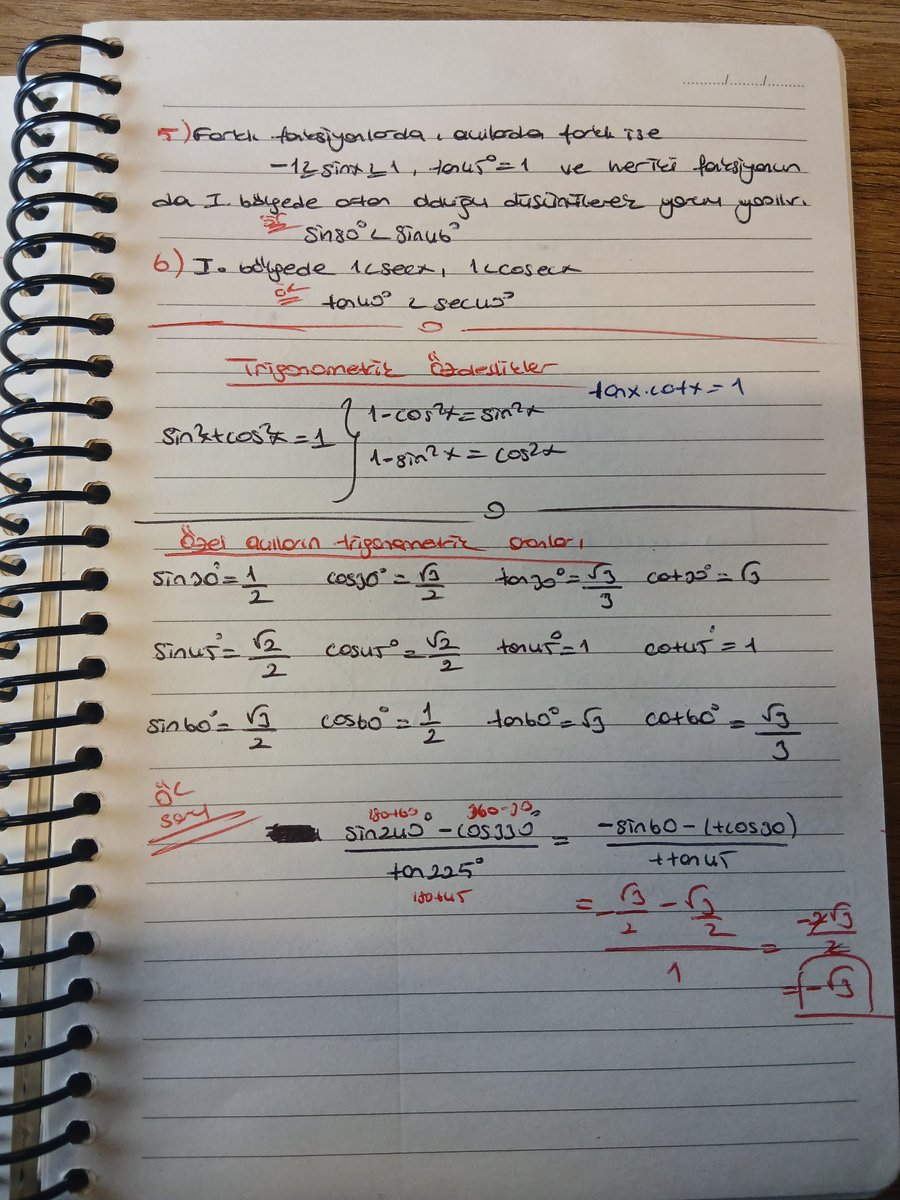 ……/……/……
5) Farklı fonksiyonlarda, açılarda farklı ise
-1≥sinx≥1, tan45°=1 ve her iki fonksiyonun
da I. bölgede artan olduğu düşünülerek yorum yapılır.
ÖR sin80° < sin46°
6) I. bölgede 1<secx, 1<cosecx
ÖR tan40° < sec40°
Trigonometrik Özdeşlikler
tanx.cotx=1
sin²x+cos²x=1 { 1-cos²x=sin²x
1-sin²x=cos²x
Özel açıların trigonometrik oranları
sin30°=1/2 cos30°=√3/2 tan30°=√3/3 cot30°=√3
sin45°=√2/2 cos45°=√2/2 tan45°=1 cot45°=1
sin60°=√3/2 cos60°=1/2 tan60°=√3 cot60°=√3/3
ÖR
soru
180+60 360-30
(sin240°-cos330°)/tan225° = (-sin60-(+cos30))/+tan45
180+45
= (-√3/2-√3/2)/1 = -2√3/2
= -√3